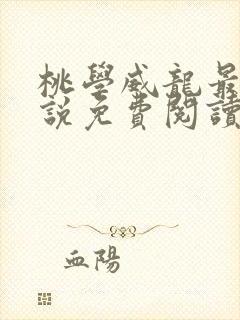 桃學威龍最
說免費閱讀
血陽